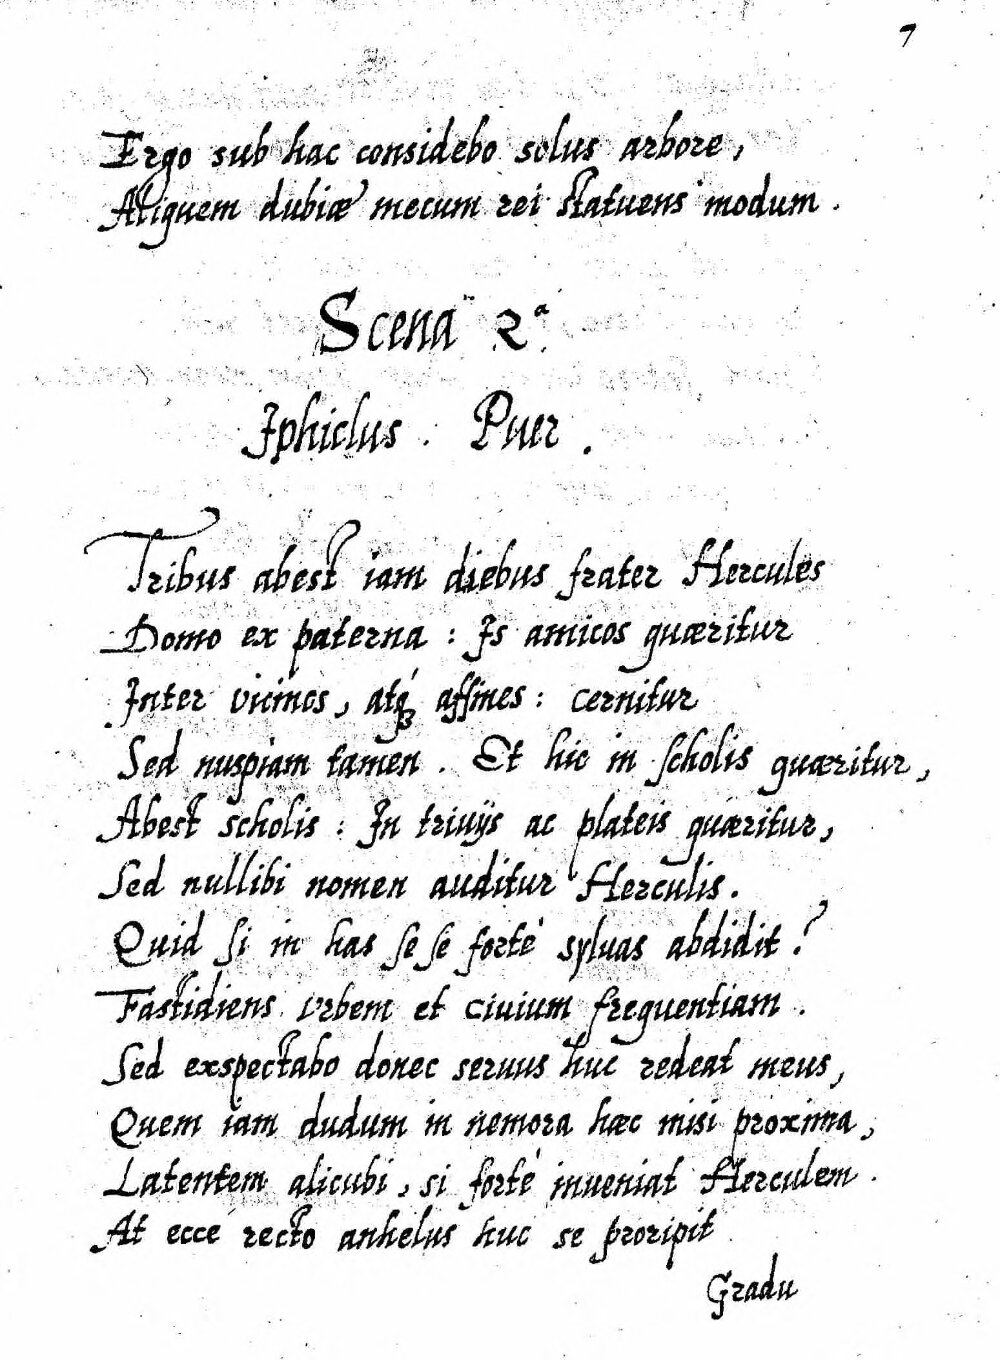 7
Ergo sub hac considebo solus arbore,
Aliquem dubiæ mecum rei statuens modum.
Scena 2ª
Iphiclus. Puer.
Tribus abest iam diebus frater Hercules
Domo ex paterna: Is amicos quæritur
Inter vicinos, atq́ꝫ affines: cernitur
Sed nuspiam tamen. Et hic in scholis quæritur,
Abest scholis: In triuijs ac plateis quæritur,
Sed nullibi nomen auditur Herculis.
Quid si in has sese fortè syluas abdidit?
Fastidiens vrbem et ciuium frequentiam.
Sed exspectabo donec seruus huc redeat meus,
Quem iam dudum in nemora hæc misi proxima,
Latentem alicubi, si fortè inueniat Herculem.
At ecce recto anhelus huc se proripit
Gradu